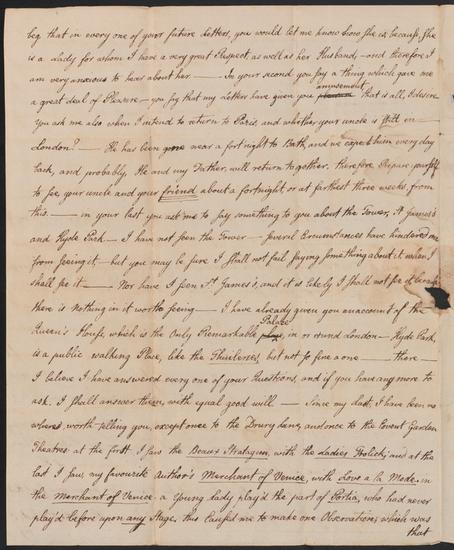 beg that in every one of your future Letters, you would let me know how she is because, She
is a Lady for whom I have a very great Respect, as well as her Husband, and therefore I
am very anxious to hear about her — In your second you say a thing which gave me
amusement
a great deal of Plesure — you say that my Letters have given you That is all I desire
You ask me also when I intend to return to Paris and whether your uncle is still in
London? — He has been gone near a fortnight to Bath, and we expect him every day
back, and probably, He and my Father, will return together, therefore Prepare yourself
to see, your uncle and your friend about a fortnight, or at farthest three weeks from
this. — in your last you ask me to say something to you about the Tower, St James's
and Hyde Park — I have not seen the Tower — several Circumstances have hindered me
from seeing it — but you may be sure I shall not fail saying something about it when I
shall see it — Nor have I seen St James's, and it is likely I shall not see it because
there is nothing in it worth seeing — I have already given you an account of the
Palace
Queen's House, which is the Only Remarkable in or round London — Hyde Park,
is a public walking Place, like the Thuileries, but not so fine a one — there —
I believe I have answered every one of your Questions, and if you have any more to
ask. I shall answer them, with equal good will — Since my last, I have been no
where, worth telling you, except once to the Drury Lane, and once to the Covent Garden
Theatres at the first I saw the Beaux Stratagem, with the Ladies Frolick; and at the
last I saw my favourite Author's Merchant of Venice, with Love a la Mode. in
the Merchant of Venice a Young Lady play'd the part of Portia, who had never
play'd before upon any Stage, this Caused me to make one Observation, which was
that